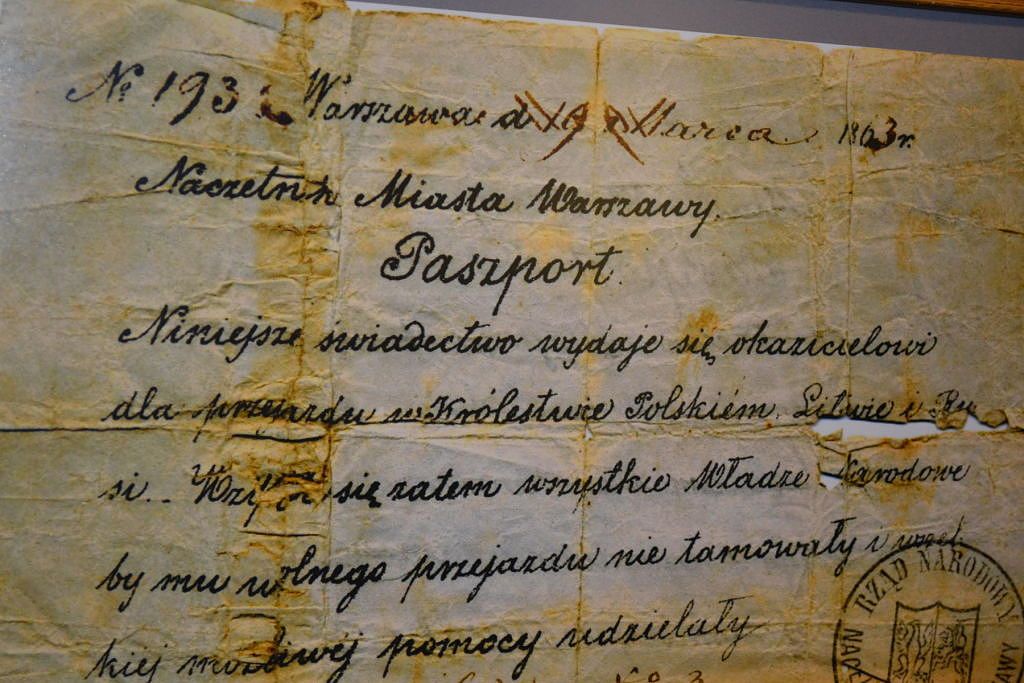 No 193 Warszawa d 19 Marca 1863 r.
Naczelnik Miasta Warszawy.
Paszport.
Niniejsze świadectwo wydaje się okazicielowi
dla przejazdu w Królestwie Polskiém, Litwie i Ru
si. Wzywa się zatem wszystkie Władze Narodowe
by mu wolnego przejazdu nie tamowały i wszel
kiej możliwéj pomocy udzielały
RZĄD NARODOWY